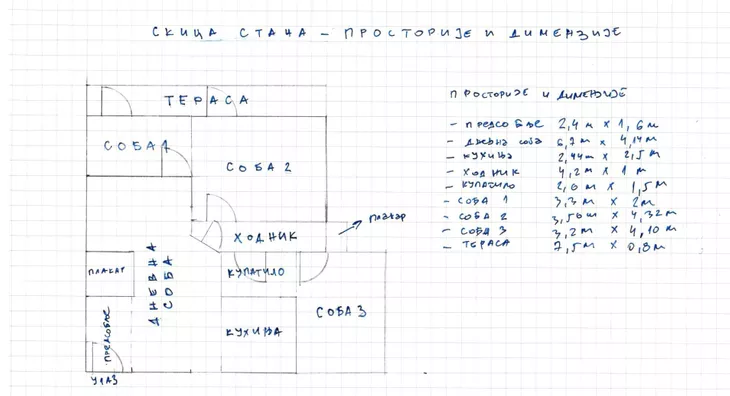 СКИЦА СТАНА - ПРОСТОРИЈЕ И ДИМЕНЗИЈЕ
ПРОСТОРИЈЕ И ДИМЕНЗИЈЕ
- ПРЕДСОБЉЕ 2,4 м х 1,6 м
- ДНЕВНА СОБА 6,7 м х 4,14 м
- КУХИЊА 2,44 м х 2,5 м
- ХОДНИК 4,2 м х 1 м
- КУПАТИЛО 2,6 м х 1,5 м
- СОБА 1 3,3 м х 2 м
- СОБА 2 3,56 м х 4,32 м
- СОБА 3 3,2 м х 4,10 м
- ТЕРАСА 7,5 м х 0,8 м
ТЕРАСА
СОБА 1
СОБА 2
ХОДНИК
ПЛАКАР
ПЛАКАР
КУПАТИЛО
ДНЕВНА
СОБА
СОБА 3
КУХИЊА
ПРЕДСОБЉЕ
УЛАЗ